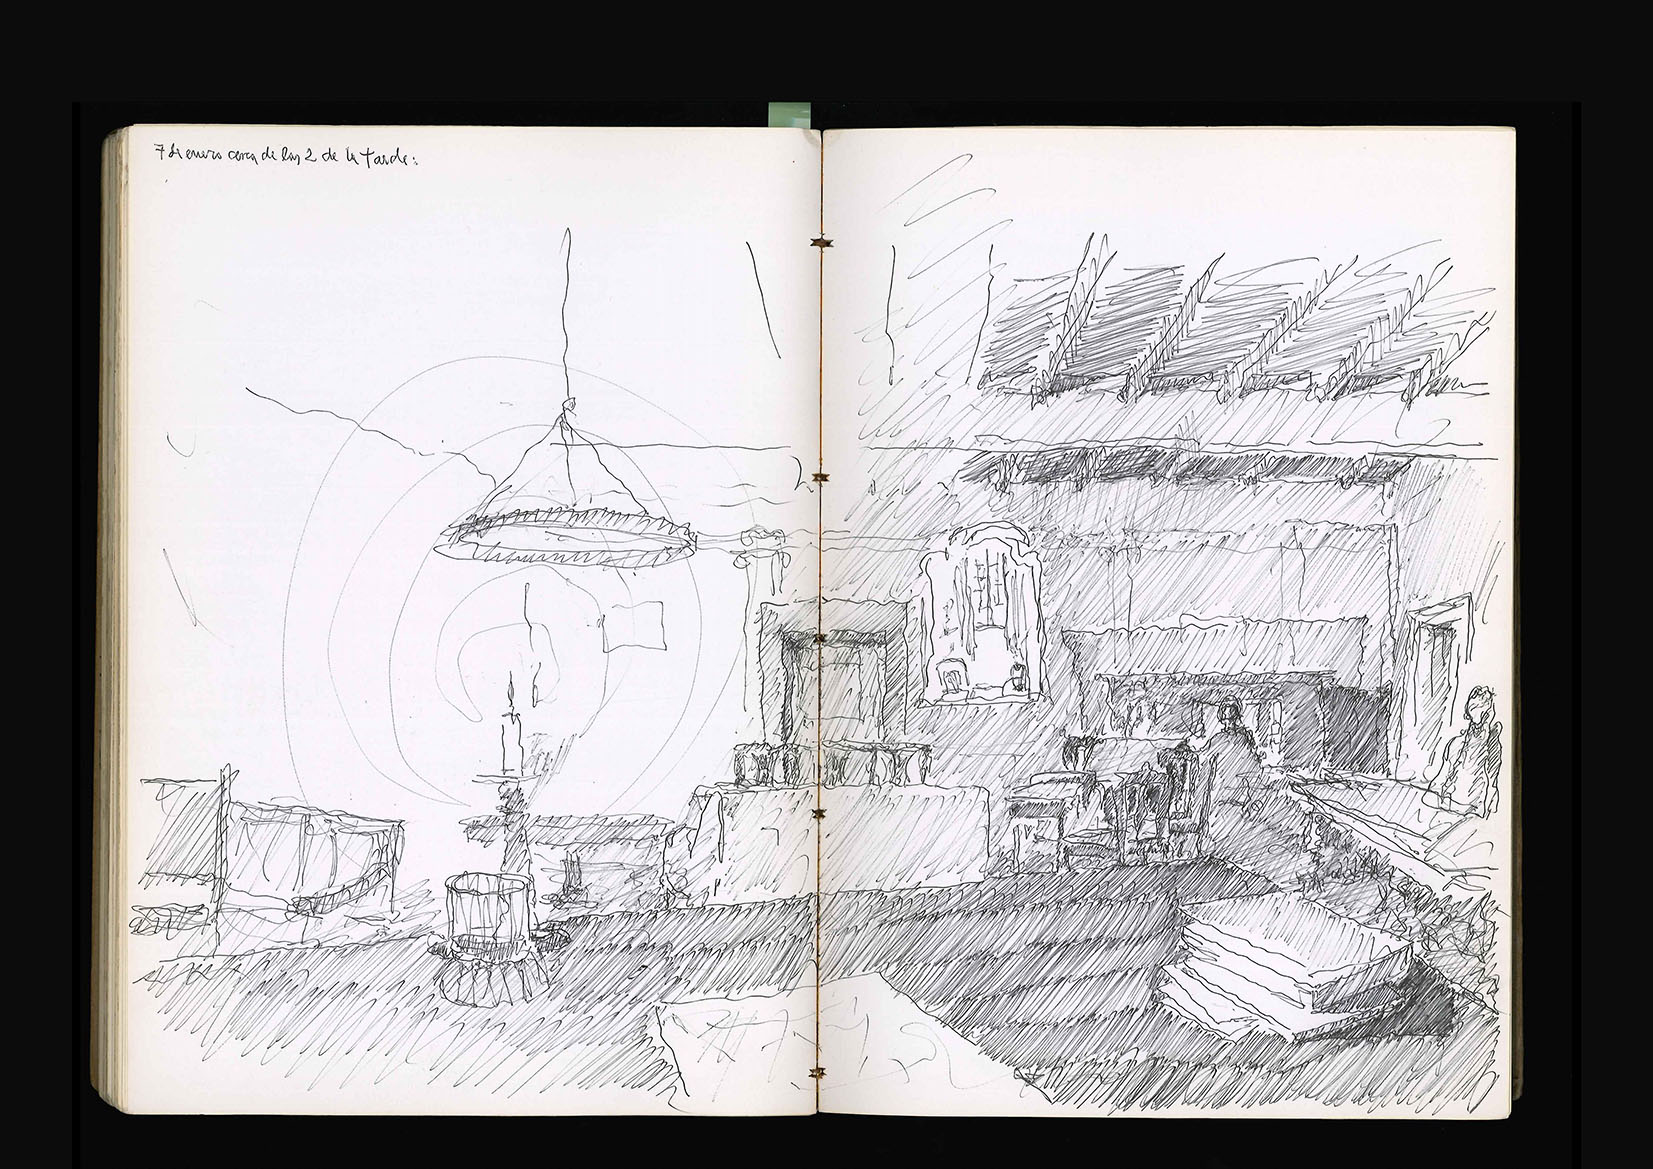 7 de enero cerca de las 2 de la tarde: